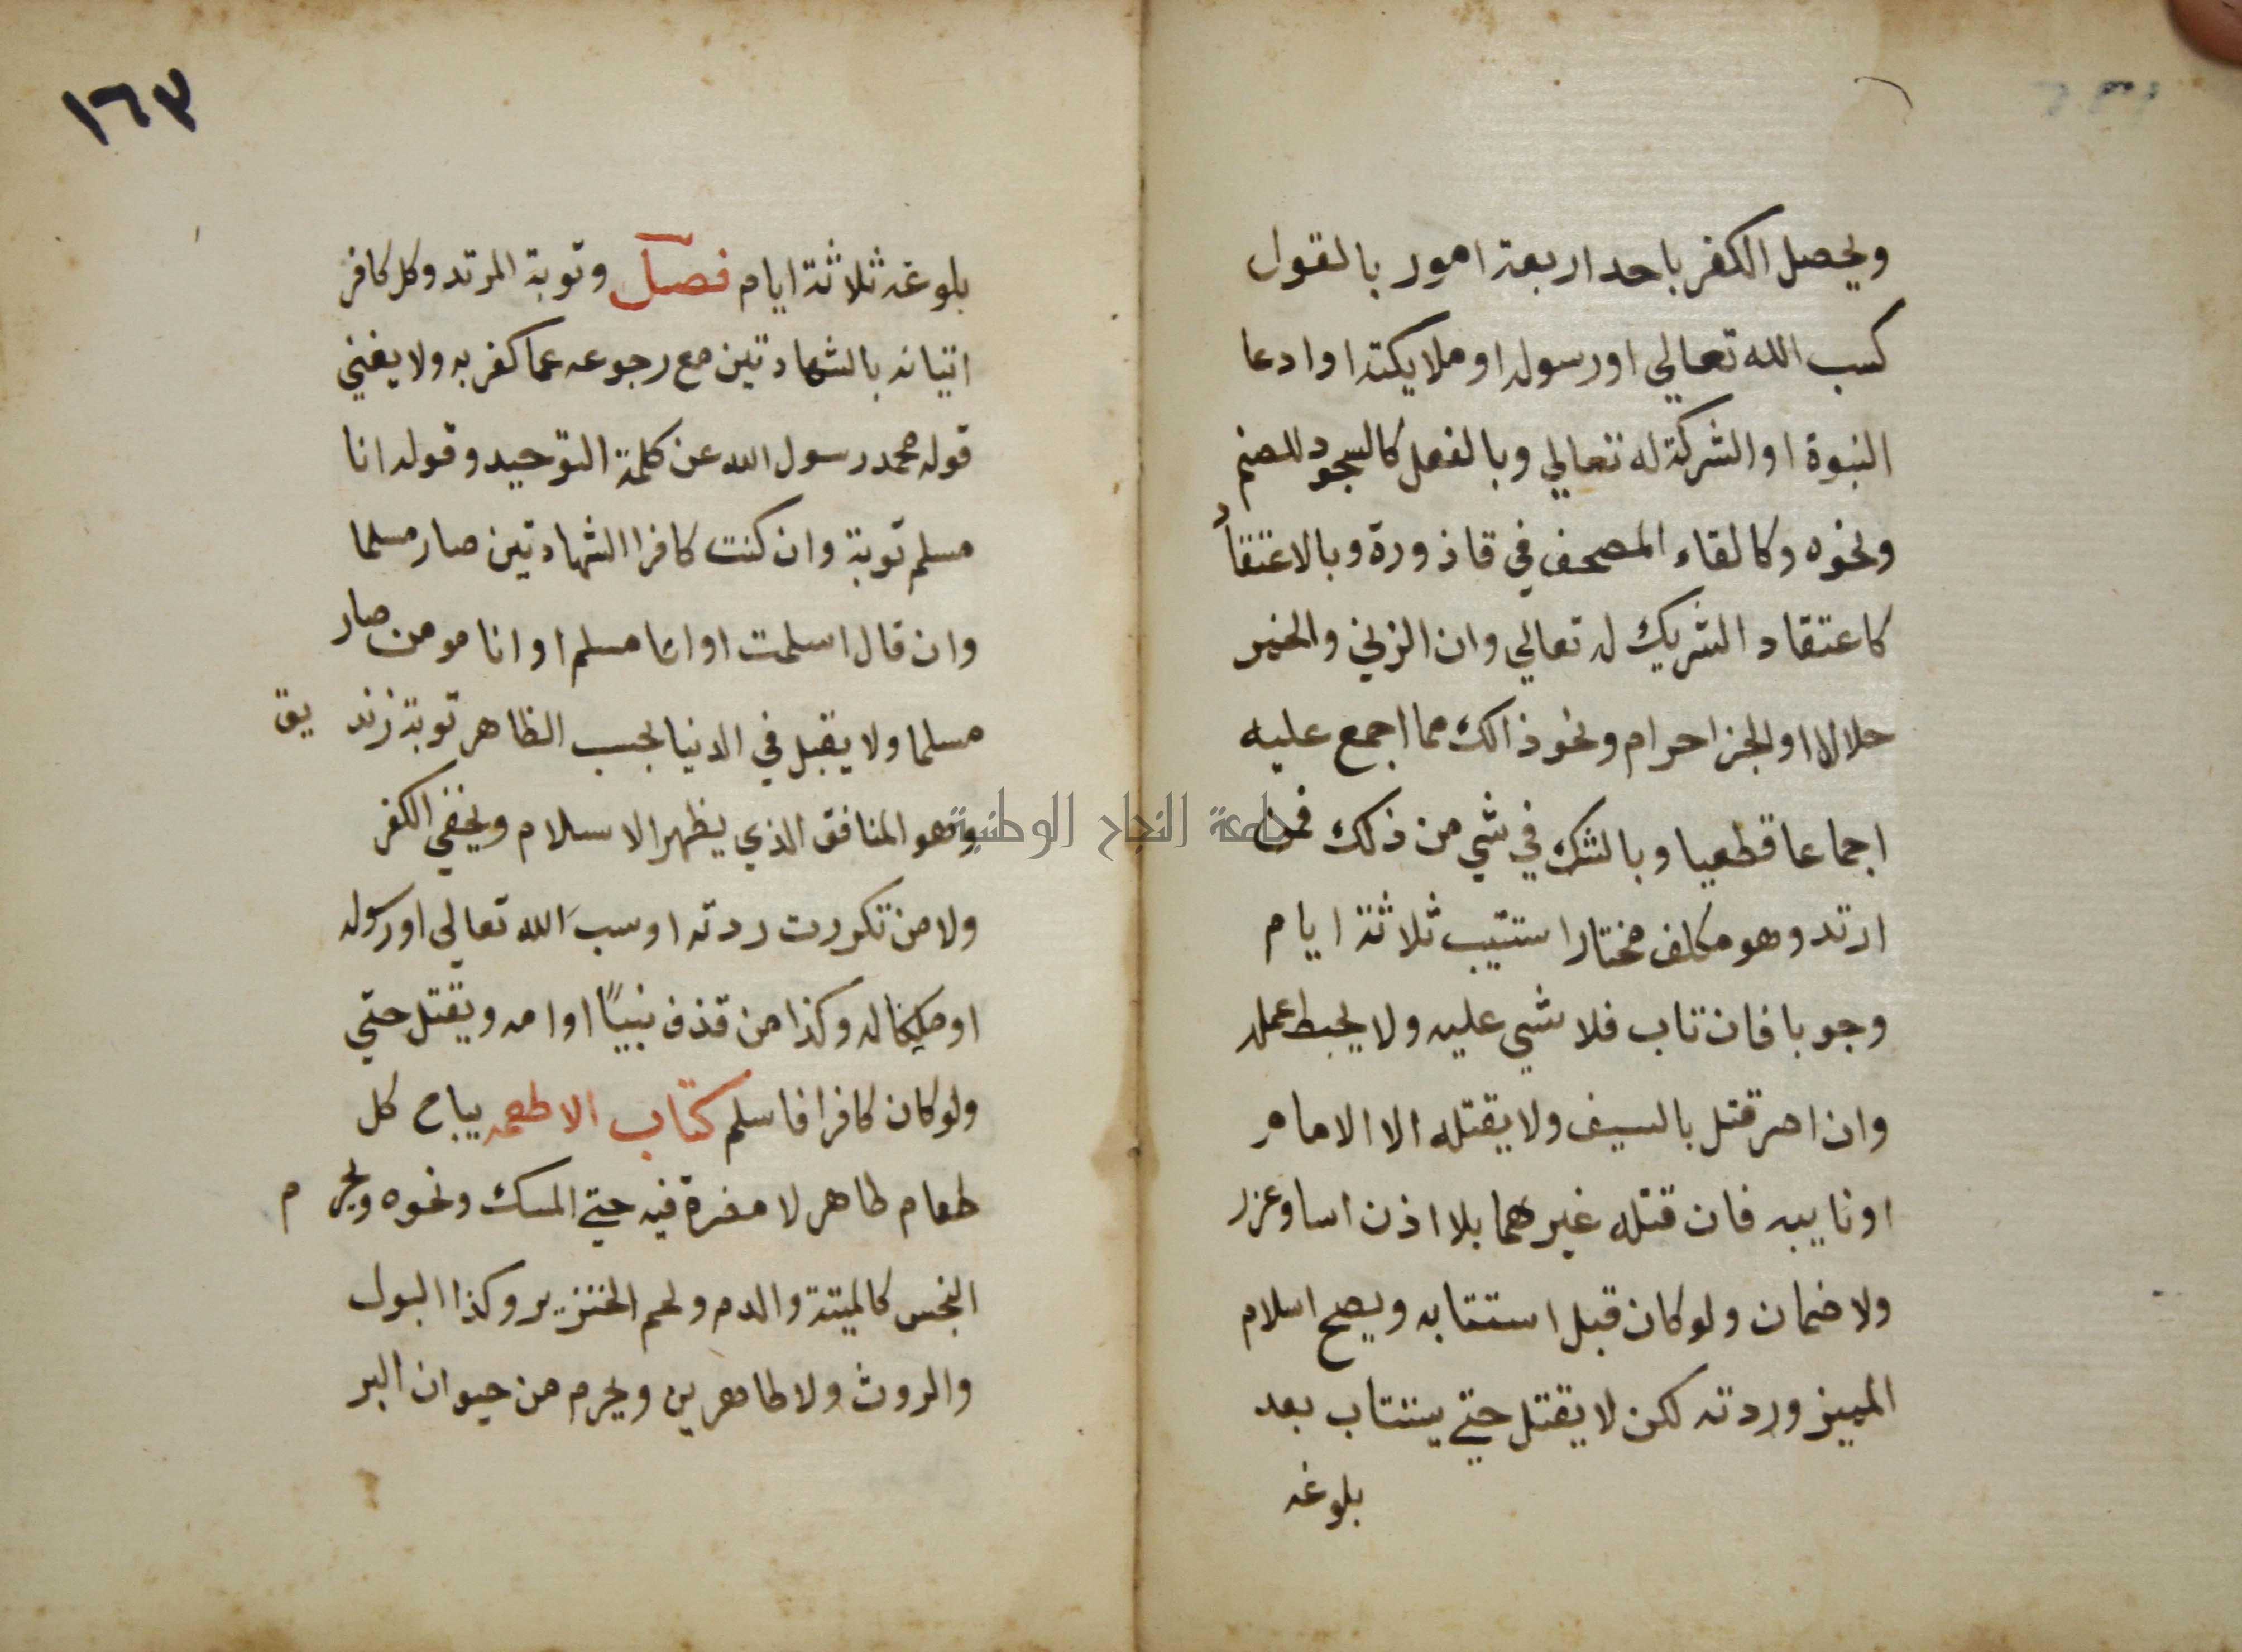 ويحصل الكفر باحد اربعة امور بالقول
كسب الله تعالي او رسوله او ملايكته او ادعا
النبوة او الشركة له تعالي وبالفعل كالسجود للصنم
ونحوه وكالقاء المصحف في قاذورة وبالاعتقاد
كاعتقاد الشريك له تعالي وان الزني والخمر
حلالا او الخبز احرام ونحو ذالك مما اجمع عليه
اجماعا قطعيا وبالشك في شي من ذلك فمن
ارتد وهو مكلف مختار استتيب ثلاثة ايام
وجوبا فان تاب فلا شي عليه ولا يحبط عمله
وان اصر قتل بالسيف ولا يقتله الا الامام
او نايبه فان قتله غيرهما بلا اذن اسا وعزر
ولا ضمان ولو كان قبل استتابه ويصح اسلام
المميز وردته لكن لا يقتل حتي يستتاب بعد
بلوغه
١٦٣
بلوغه ثلاثة ايام فصل وتوبة المرتد وكل كافر
اتيانه بالشهادتين مع رجوعه عما كفر به ولا يغني
قوله محمد رسول الله عن كلمة التوحيد وقوله انا
مسلم توبة وان كنت كافرا الشهادتين صار مسلما
وان قال اسلمت او انا مسلم او انا مومن صار
مسلما ولا يقبل في الدنيا بحسب الظاهر توبة زنديق
وهو المنافق الذي يظهر الاسلام ويخفي الكفر
ولا من تكررت ردته او سب الله تعالي او رسوله
او ملكا له وكذا من قذف نبيًا او امه ويقتل حتي
ولو كان كافرا فاسلم كتاب الاطعمه يباح كل
طعام طاهر لا مضرة فيه حتي المسك ونحوه ويحرم
النجس كالميتة والدم ولحم الخنزير وكذا البول
والروث ولا طاهرين ويحرم من حيوان البر
جامعة النجاح الوطنية